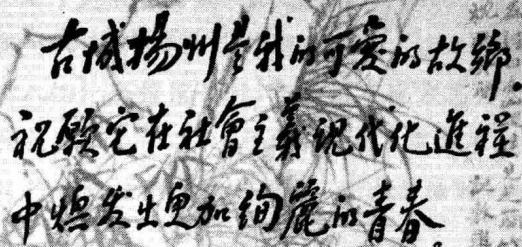 古城揚州是我的可愛的故鄉.
祝願它在社會主義現代化進程
中煥发出更加絢麗的青春。